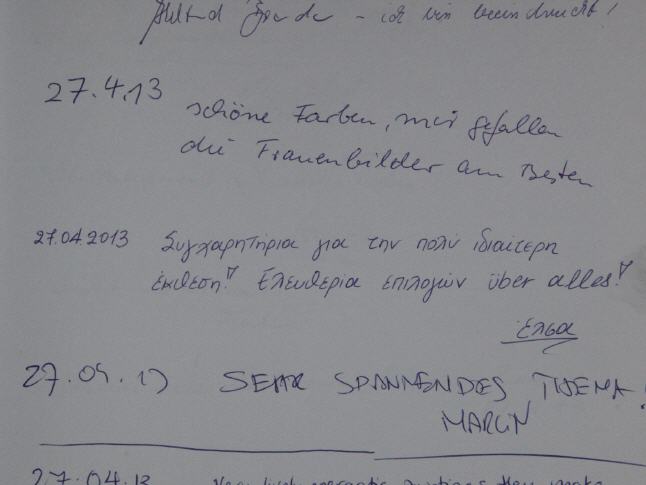 - ich bin beeindruckt!
27.4.13 schöne Farben, mir gefallen
die Frauenbilder am Besten
27.04.2013 Συγχαρητήρια για την πολύ ιδιαίτερη
έκθεση! Ελευθερία επιλογών über alles!
Έλσα
27.04.13 SEHR SPANNENDES THEMA!
MARCIN
27.04.13